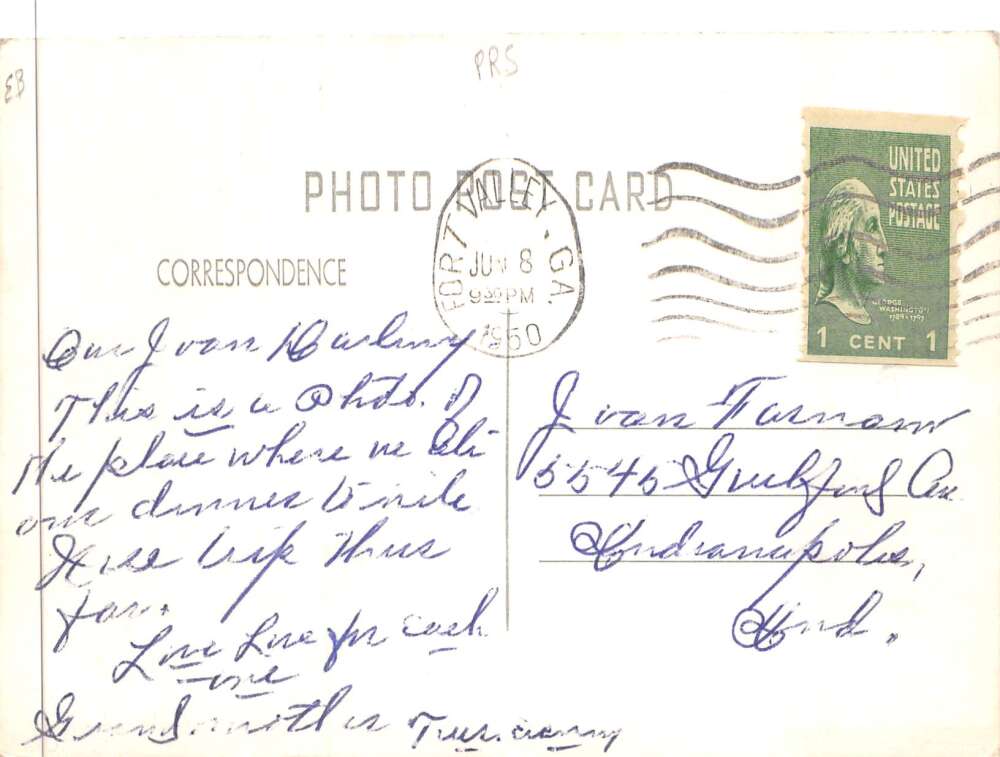 EB
PRS
PHOTO POST CARD
FORT VALLEY. GA.
JUN 8
9 30 PM
1950
UNITED
STATES
POSTAGE
GEORGE
WASHINGTON
1789-1797
1 CENT 1
CORRESPONDENCE
Our Joan Darling
This is a Photo. of
the place where we ate
our dinner to nite
Nise trip thus
far.
Love Love for each
one
Grandmother
Joan Farnam
5545 Guilford Ave
Indianapolis,
Ind.